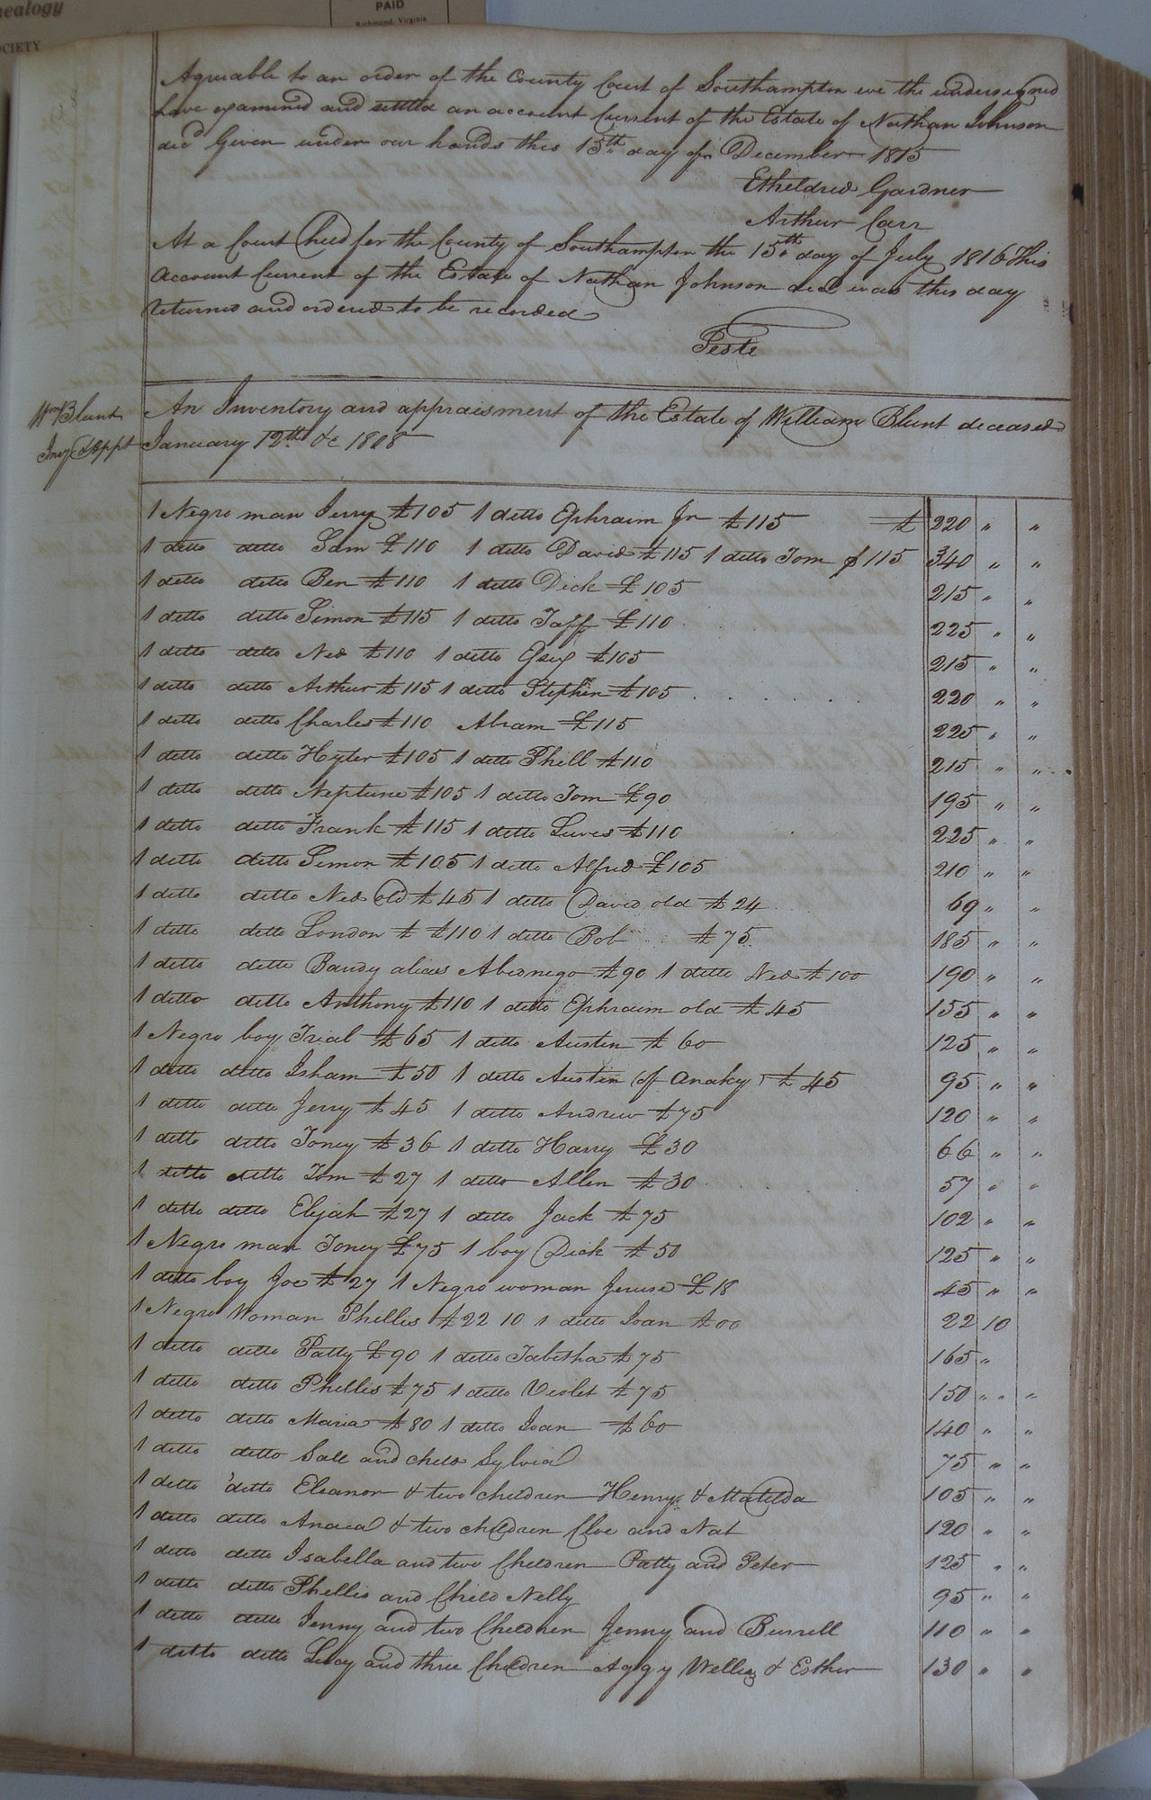 nealogy
OCIETY
PAID
Richmond, Virginia
Agreable to an order of the County Court of Southampton we the undersigned
have examined and settled an account Current of the Estate of Nathan Johnson
decd Given under our hands this 15th day of December 1815
Etheldred Gardner
Arthur Carr
At a Court held for the County of Southampton the 15th day of July 1816 This
Account Current of the Estate of Nathan Johnson decd was this day
returned and ordered to be recorded
Teste
Wm Blunt
Invy & Appt
An Inventory and appraisment of the Estate of William Blunt deceased
January 12th &c 1808
1 Negro man Jerry £105 1 ditto Ephraim Jr £115 £ 220 " "
1 ditto ditto Sam £110 1 ditto David £115 1 ditto Tom £115 340 " "
1 ditto ditto Ben £110 1 ditto Dick £105 215 " "
1 ditto ditto Simon £115 1 ditto Taff £110 225 " "
1 ditto ditto Ned £110 1 ditto £105 215 " "
1 ditto ditto Arthur £115 1 ditto Stephen £105 220 " "
1 ditto ditto Charles £110 Abram £115 225 " "
1 ditto ditto Hyter £105 1 ditto Phill £110 215 " "
1 ditto ditto Neptune £105 1 ditto Tom £90 195 " "
1 ditto ditto Frank £115 1 ditto Lewis £110 225 " "
1 ditto ditto Simon £105 1 ditto Alfred £105 210 " "
1 ditto ditto Ned old £45 1 ditto David old £24 69 " "
1 ditto ditto London £ £110 1 ditto Bob £75 185 " "
1 ditto ditto Bandy alias Abednego £90 1 ditto Ned £100 190 " "
1 ditto ditto Anthony £110 1 ditto Ephraim old £45 155 " "
1 Negro boy Trial £65 1 ditto Austin £60 125 " "
1 ditto ditto Isham £50 1 ditto Austin (of Anaky) £45 95 " "
1 ditto ditto Jerry £45 1 ditto Andrew £75 120 " "
1 ditto ditto Toney £36 1 ditto Harry £30 66 " "
1 ditto ditto Tom £27 1 ditto Allen £30 57 " "
1 ditto ditto Elijah £27 1 ditto Jack £75 102 " "
1 Negro man Toney £75 1 boy Dick £50 125 " "
1 ditto boy Joe £27 1 Negro woman £18 45 " "
1 Negro Woman Phillis £22 10 1 ditto Joan £00 22 10
1 ditto ditto Patty £90 1 ditto Tabitha £75 165 "
1 ditto ditto Phillis £75 1 ditto Violet £75 150 " "
1 ditto ditto Maria £80 1 ditto Joan £60 140 " "
1 ditto ditto Sall and child Sylvia 75 " "
1 ditto ditto Eleanor & two children Henry & Matilda 105 " "
1 ditto ditto & two children Cloe and Nat 120 " "
1 ditto ditto Isabella and two Children Patty and Peter 125 " "
1 ditto ditto Phillis and Child Nelly 95 " "
1 ditto ditto Jenny and two Children Jenny and Burrell 110 " "
1 ditto ditto Lucy and three Children Aggy & Esther 130 " "